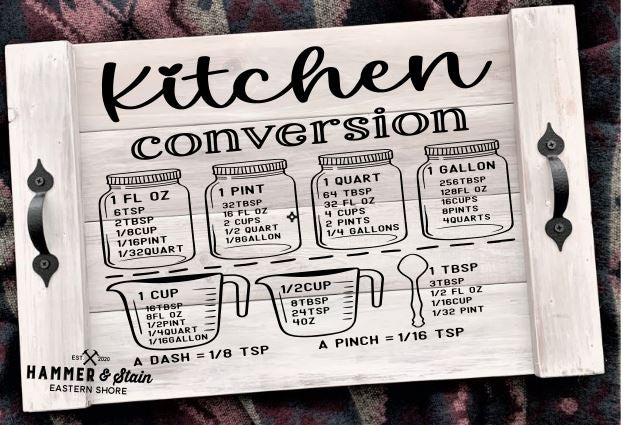 Kitchen
conversion
1 FL OZ
6TSP
2TBSP
1/8CUP
1/16PINT
1/32QUART
1 PINT
32TBSP
16 FL OZ
2 CUPS
1/2 QUART
1/8GALLON
1 QUART
64 TBSP
32 FL OZ
4 CUPS
2 PINTS
1/4 GALLONS
1 GALLON
256TBSP
128FL OZ
16CUPS
8PINTS
4QUARTS
1 CUP
16TBSP
8FL OZ
1/2PINT
1/4QUART
1/16GALLON
1/2CUP
8TBSP
24TSP
4OZ
1 TBSP
3TBSP
1/2 FL OZ
1/16CUP
1/32 PINT
A DASH = 1/8 TSP
A PINCH = 1/16 TSP
EST 2020
HAMMER & Stain
EASTERN SHORE